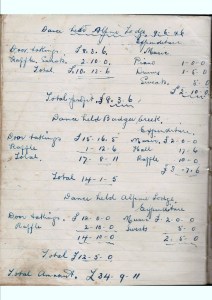 Dance held Alpine Lodge 9.6.46
Expenditure
Door takings. £8.3.6. Music
Raffle, Sweets. 2.10.0, Piano 1-0-0
Total. 10.13-6 Drums 1-5-0
Sweets 5-0
£2.10.0
Total profit. £8.3.6.
Dance held Badger Creek.
Expenditure.
Door takings. £15.16.5 Music. £2-0-0
Raffle 1-12-6 Hall 17-6
Total. 17-8-11 Raffle 10-0
£3-7.6
Total 14-1-5
Dance held Alpine Lodge.
Expenditure
Door takings. £12-0-0 Music £2-0-0
Raffle 2-10-0 Sweets 5-0
14-10-0 2-5-0
Total £12-5-0
Total Amount. £34-9-11